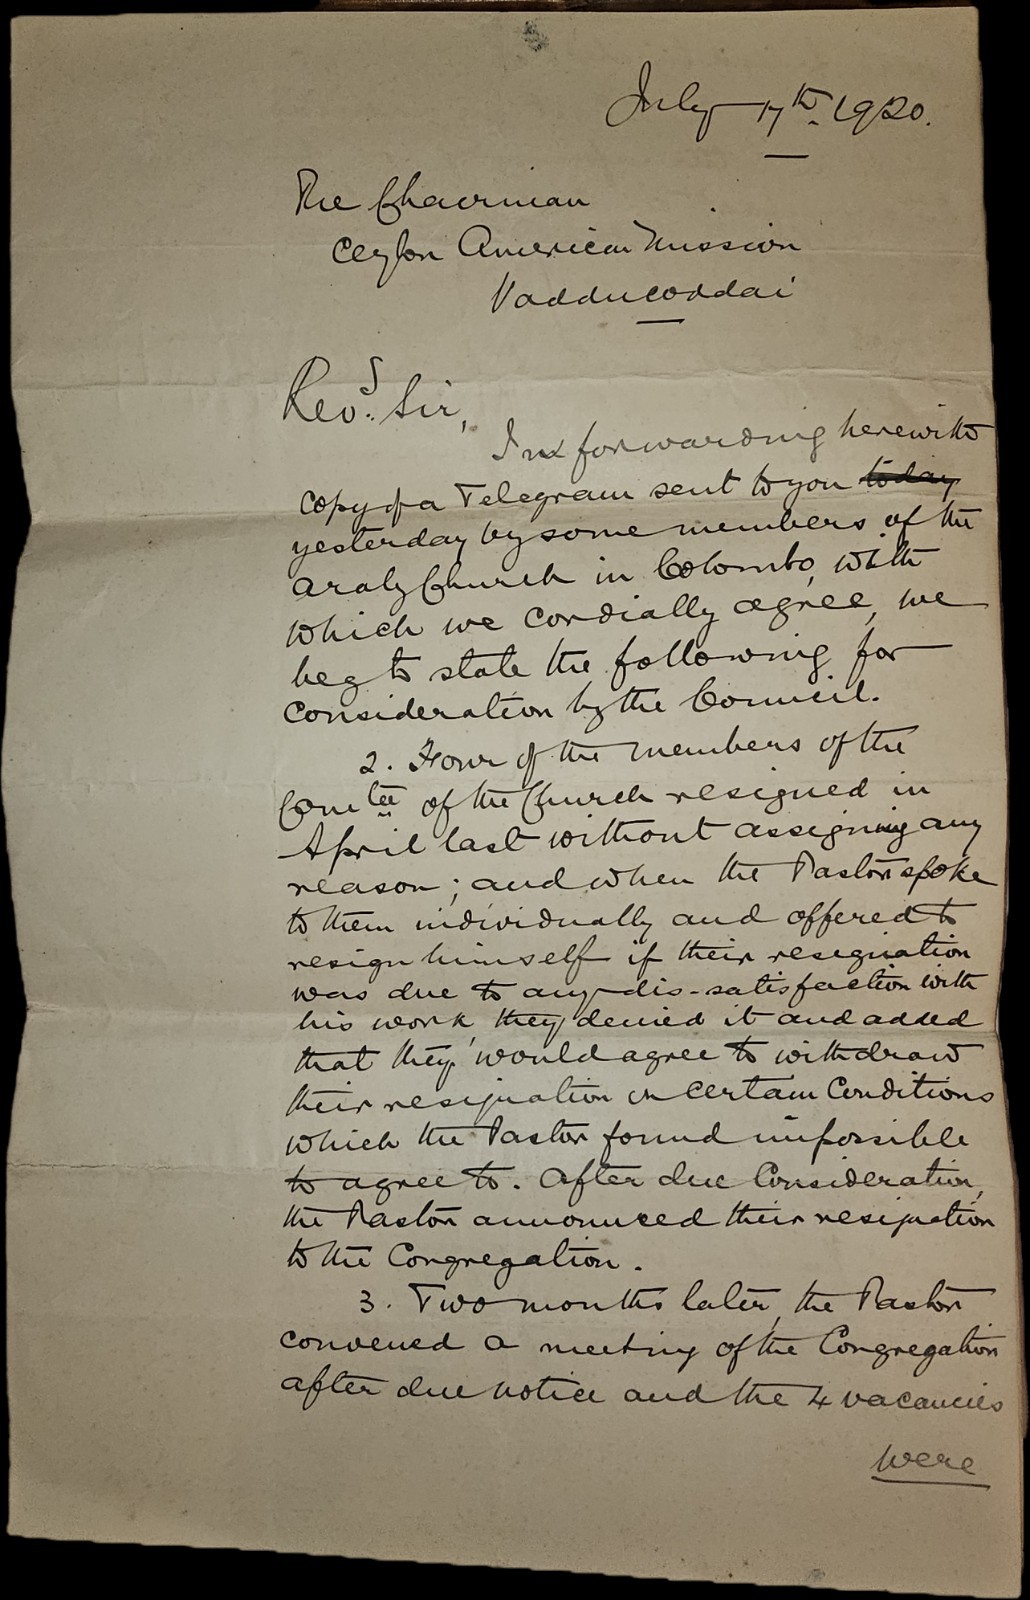 July 17th. 1920.
The Chairman
Ceylon American Mission
Vadducoddai
Revd. Sir,
In forwarding herewith
copy of a Telegram sent to you today
yesterday by some members of the
Araly Church in Colombo, with
which we cordially agree, we
beg to state the following for
consideration by the Council.
2. Four of the members of the
Comtee of the Church resigned in
April last without assigning any
reason; and when the Pastor spoke
to them individually and offered to
resign himself if their resignation
was due to any dis-satisfaction with
his work, they denied it and added
that they would agree to withdraw
their resignation on certain Conditions
which the Pastor found impossible
to agree to. After due Consideration,
the Pastor announced their resignation
to the Congregation.
3. Two months later, the Pastor
convened a meeting of the Congregation
after due notice and the 4 vacancies
were